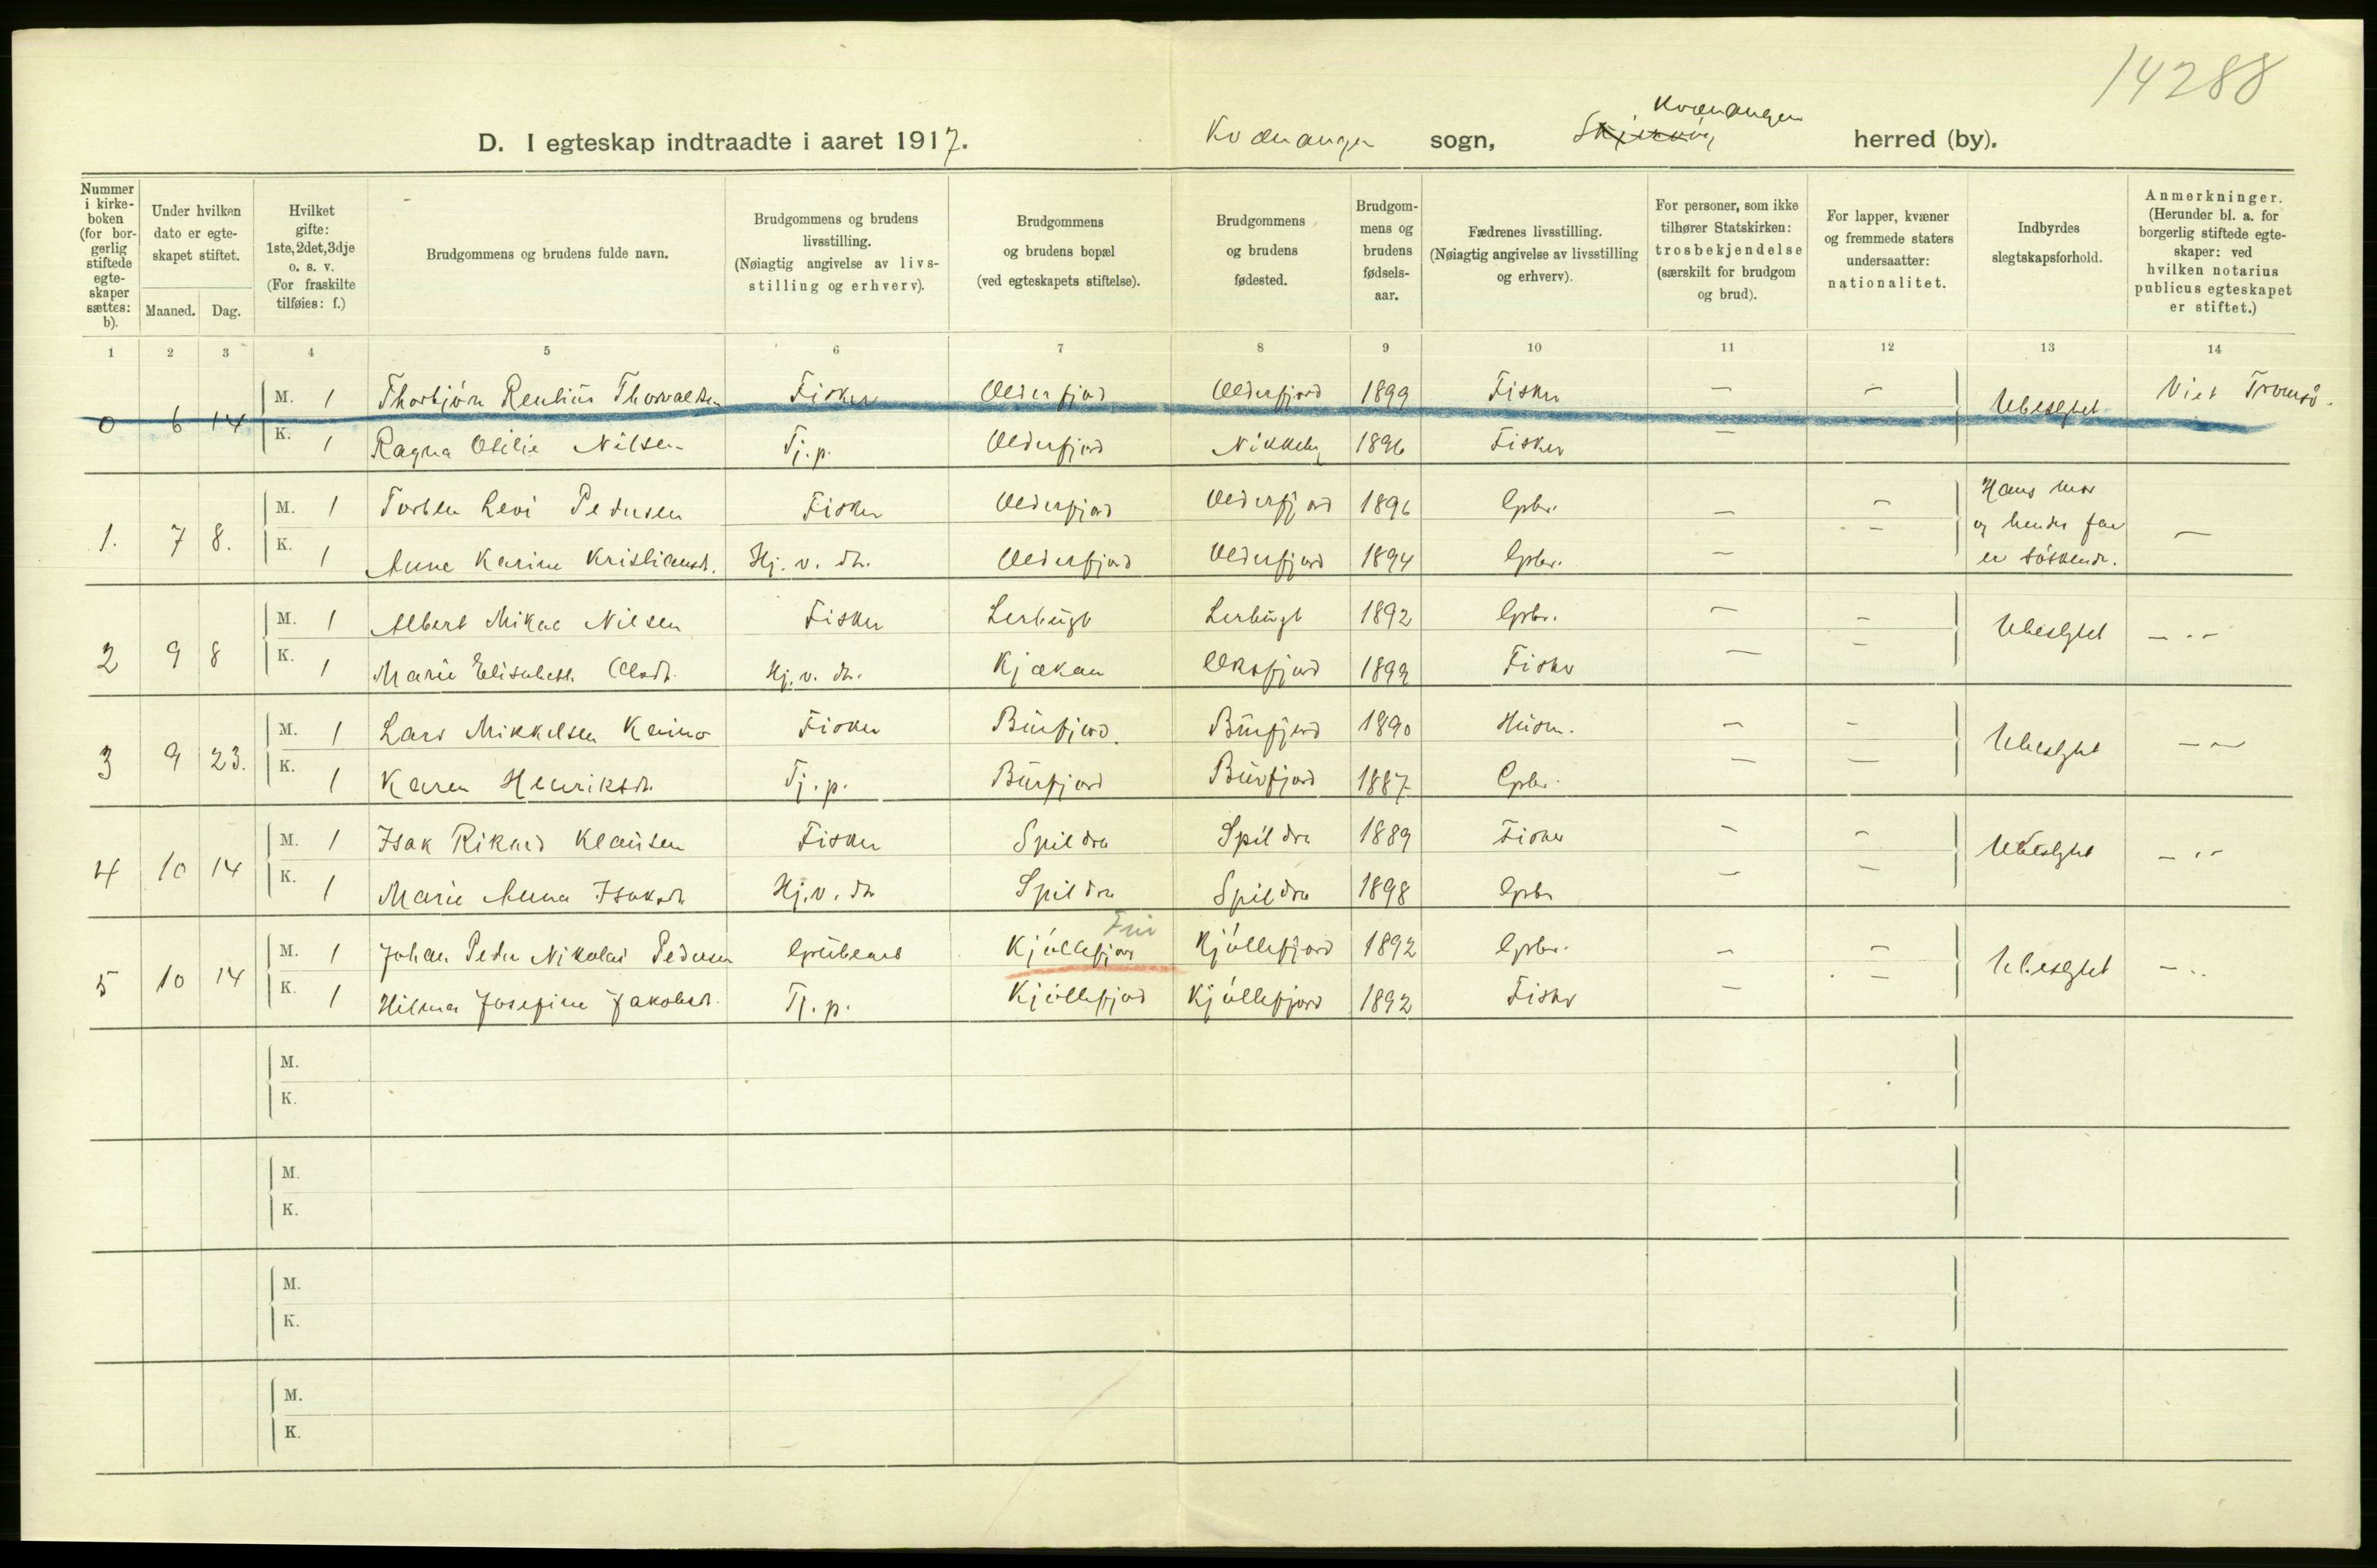 14288
D. I egteskap indtraadte i aaret 1917. Kvænangen sogn, Skjervøy Kvænangen herred (by).
Nummer i kirkeboken (for borgerlig stiftede egteskaper sættes: b).
Under hvilken dato er egteskapet stiftet.
Maaned. Dag.
Hvilket gifte: 1ste, 2det, 3dje o. s. v. (For fraskilte tilføies: f.)
Brudgommens og brudens fulde navn.
Brudgommens og brudens livsstilling. (Nøiagtig angivelse av livsstilling og erhverv).
Brudgommens og brudens bopæl (ved egteskapets stiftelse).
Brudgommens og brudens fødested.
Brudgommens og brudens fødselsaar.
Fædrenes livsstilling. (Nøiagtig angivelse av livsstilling og erhverv).
For personer, som ikke tilhører Statskirken: trosbekjendelse (særskilt for brudgom og brud).
For lapper, kvæner og fremmede staters undersaatter: nationalitet.
Indbyrdes slegtskapsforhold.
Anmerkninger. (Herunder bl. a. for borgerlig stiftede egteskaper: ved hvilken notarius publicus egteskapet er stiftet.)
1 2 3 4 5 6 7 8 9 10 11 12 13 14
0 6 14 M. 1 Thorbjörn Thorvaldsen Fisker Olderfjord Olderfjord 1899 Fisker — — Ubeslgtet Viet Tromsö.
K. 1 Ragna Otilie Nilsen Tj. p. Olderfjord Nikkeby 1896 Fisker —
1. 7 8. M. 1 Torben Levi Pedersen Fisker Olderfjord Olderfjord 1896 Gpbr. — — Hans mor og hendes far er söskende. —
K. 1 Anne Karine Kristiansd. Hj. v. dr. Olderfjord Olderfjord 1894 Gpbr. — —
2 9 8 M. 1 Albert Mikal Nilsen Fisker Lerbugt Lerbugt 1892 Gpbr. — — Ubeslgtet — " —
K. 1 Marie Elisabeth Olsd. Hj. v. dr. Kjækan Oksfjord 1899 Fisker — —
3 9 23. M. 1 Lars Mikkelsen Keino Fisker Burfjord. Burfjord 1890 Husm. — — Ubeslgtet — —
K. 1 Karen Henriksd. Tj. p. Burfjord Burfjord 1887 Gpbr. — —
4 10 14 M. 1 Isak Rikard Klausen Fisker Spildra Spildra 1889 Fisker — — Ubeslgtet — " —
K. 1 Marie Anna Isaksd. Hj. v. dr Spildra Spildra 1898 Gpbr — —
5 10 14 M. 1 Johan Peder Nikolai Pedersen Kjöllefjord Kjöllefjord 1892 Gpbr. — — Ubeslgtet — "
K. 1 Hilma Josefine Jakobsd. Tj. p. Kjöllefjord Kjöllefjord 1892 Fisker — —
M.
K.
M.
K.
M.
K.
M.
K.